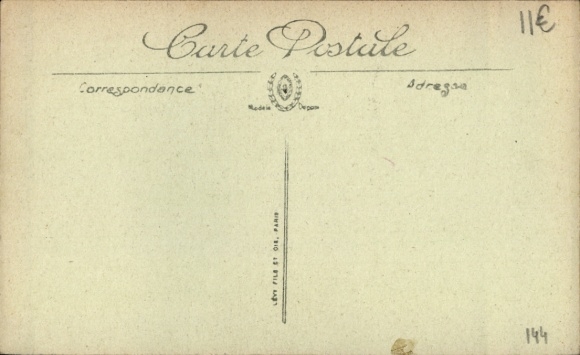 11€
Carte Postale
Correspondance
Adresse
Modèle Déposé
LÉVY FILS ET CIE, PARIS
144